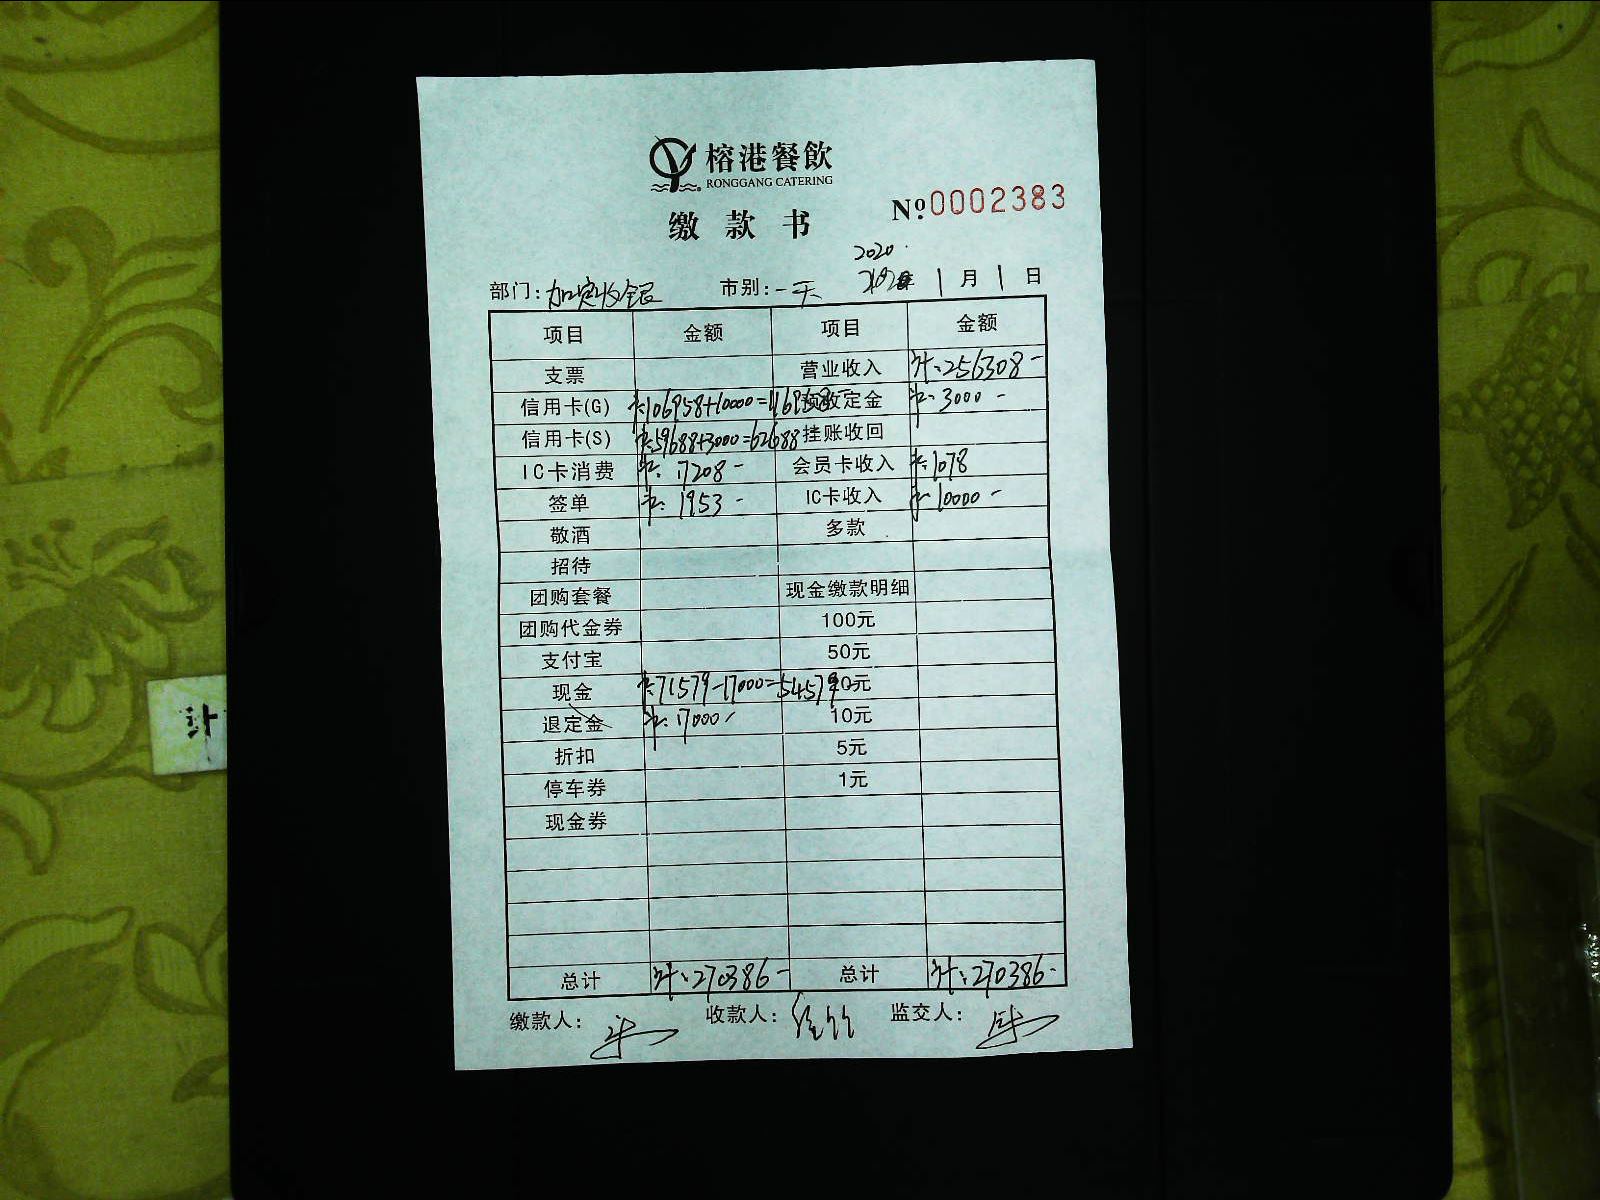 榕港餐飲
RONGGANG CATERING
缴款书 №0002383
2020
部门：加宽收银 市别：一天 1月1日
项目 金额 项目 金额
支票 营业收入 256308-
信用卡(G) 106958+10000=116958 预收定金 3000-
信用卡(S) 59688+3000=62688 挂账收回
IC卡消费 17208- 会员卡收入 1078
签单 1953- IC卡收入 10000-
敬酒 多款
招待
团购套餐 现金缴款明细
团购代金券 100元
支付宝 50元
现金 71579-17000=54579 20元
退定金 17000- 10元
折扣 5元
停车券 1元
现金券
总计 270386- 总计 270386-
缴款人： 收款人： 监交人：
计